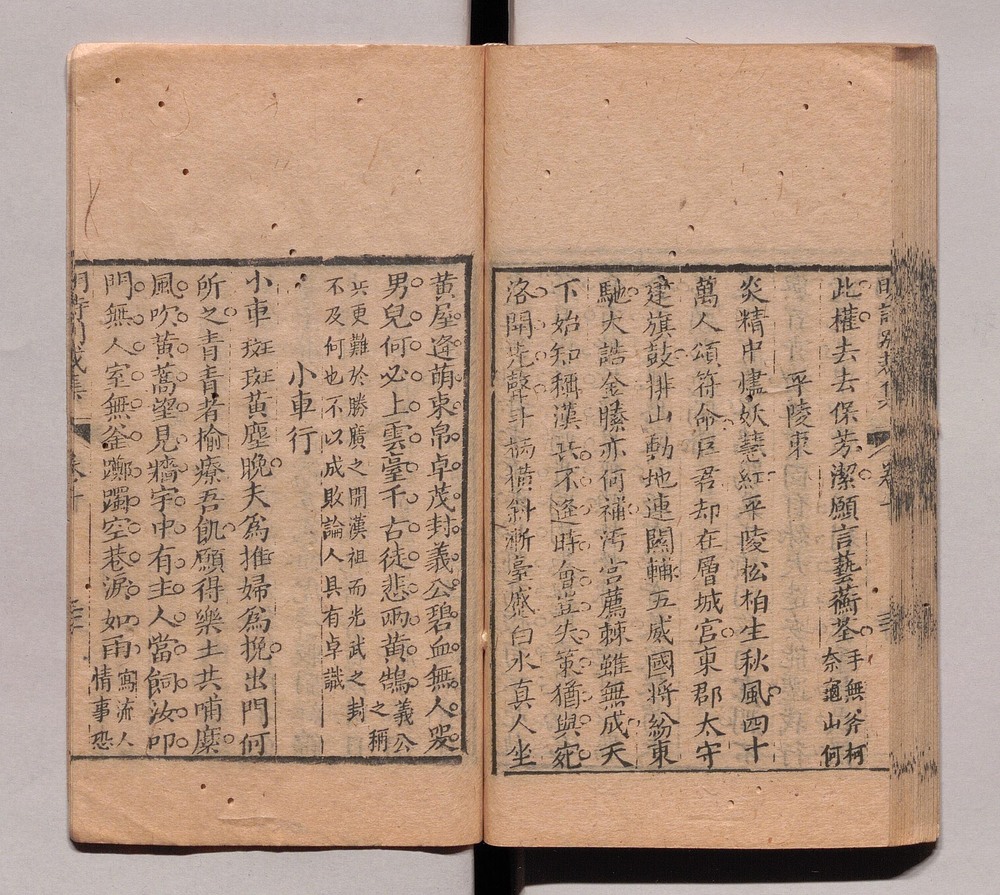 明詩別裁集 卷十
此權去去保芳潔願言藝蘅荃 手無斧柯
奈龜山何
平陵東
炎精中燼妖彗紅平陵松柏生秋風四十
萬人頌符命巨君却在層城宮東郡太守
建旗鼓排山動地連關輔五威國將紛東
馳大誥金縢亦何補污宮薦棘雖無成天
下始知稱漢兵不逢時會豈失策猶與宛
洛開先聲斗柄橫斜漸臺蹙白水真人坐
黃屋逢萌束帛卓茂封義公碧血無人哭
男兒何必上雲臺千古徒悲兩黃鵠 義公
之稱
兵更難於勝廣之開漢祖而光武之封
不及何也不以成敗論人具有卓識
小車行
小車班班黃塵晚夫爲推婦爲挽出門何
所之青青者榆療吾飢願得樂土共哺糜
風吹黃蒿望見牆宇中有主人當飼汝叩
門無人室無釜躑躅空巷淚如雨 寫流人
情事恐